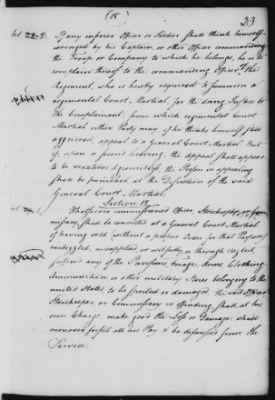 (18) 23
Art. 2. If any inferior Officer or Soldier shall think himself
wronged by his Captain, or other Officer commanding
the Troop or Company to which he belongs, he is to
complain thereof to the commanding Officer of the
Regiment, who is hereby required to summon a
regimental Court Martial for the doing Justice to
the Complainant, from which regimental Court
Martial either Party may, if he thinks himself still
aggrieved, appeal to a General Court Martial. But
if, upon a second hearing, the appeal shall appear
to be vexatious & groundless, the Person so appealing
shall be punished at the Discretion of the said
General Court Martial.
Section 12
Art. 1. Whatsoever commissioned Officer, Storekeeper, or Com-
missary, shall be convicted at a General Court Martial
of having sold (without a proper Order for that Purpose)
embezzled, misapplied, or wilfully, or through neglect
suffered any of the Provisions, Forage, Arms, Clothing
Ammunition, or other military Stores belonging to the
United States, to be spoiled or damaged, the said Officer
Storekeeper, or Commissary so offending, shall, at his
own Charge, make good the Loss or Damage, shall
moreover forfeit all his Pay & be dismissed from the
Service.